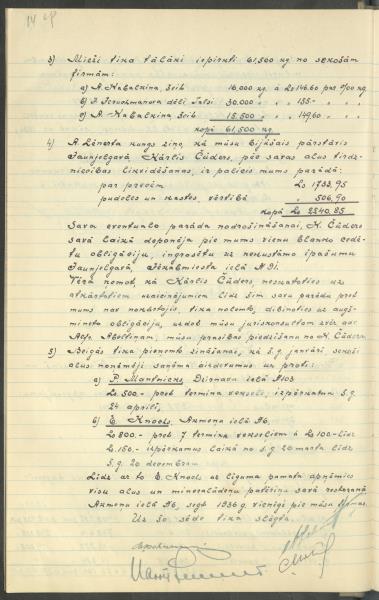 3) Mieži tika tālāki iepirkti 61,500 kg no sekošām
firmām:
a) A. Kabalkina, 16,000 kg à Ls 14.60 par %00 kg.
b) dēli Talsi 30.000 " " 155.- "
c) A. Kabalkina 15,500 " " 14,60 "
kopā 61,500 kg.
4) A. Lenerta kungs ziņo, kā mūsu bijušais pārstāvis
Jaunjelgavā Kārlis Čūders, pēc savas alus tirdz-
niecības likvidēšanas, ir palicis mums parādā:
par precēm Ls 1733,95
pudeles un kastes vērtībā " 506,90
kopā Ls 2240.85
Sava eventuelo parāda nodrošināšanai, K. Čūders
savā laikā deponēja pie mums vienu blanko cedē-
tu obligāciju, ingrosētu uz nekustāmo īpašumu
Jaunjelgavā, Jēkabmiesta ielā
Ņemot, kā Kārlis Čūders neskatoties uz
atkārtotiem uzaicinājumiem līdz šim savu parādu pret
mums nav nokārtojis, tika nolemts, dibinoties uz augš-
minēto obligāciju, uzdot mūsu juriskonsultam zvēr. adv.
Alfr. Āboltiņam, mūsu prasības piedzīšanu no K. Čūdera.
5) Beigās tika pieņemts zināšanai, kā š.g. janvārī sekoši
alus noņēmēji saņēma aizdevumus uz proti:
a) P. Mantnieks, Dzirnavu ielā №103
Ls 500.- pret termiņa vekseli, izpērkamu š.g.
24 aprīlī,
b) E. Knoch, Akmeņu ielā №6,
Ls 800.- pret 7 termiņa vekseļiem à Ls 100.- līdz
Ls 150.- izpērkamus laikā no š.g. 20 marta līdz
š.g. 20 decembrim
Līdz ar to E. Knoch uz līguma pamata apņēmies
visu alus un minerālūdeņu patēriņu savā restorānā
Akmeņu ielā №6, segt 1936 g. vienīgi pie mūsu
Uz šo sēde tika slēgta.